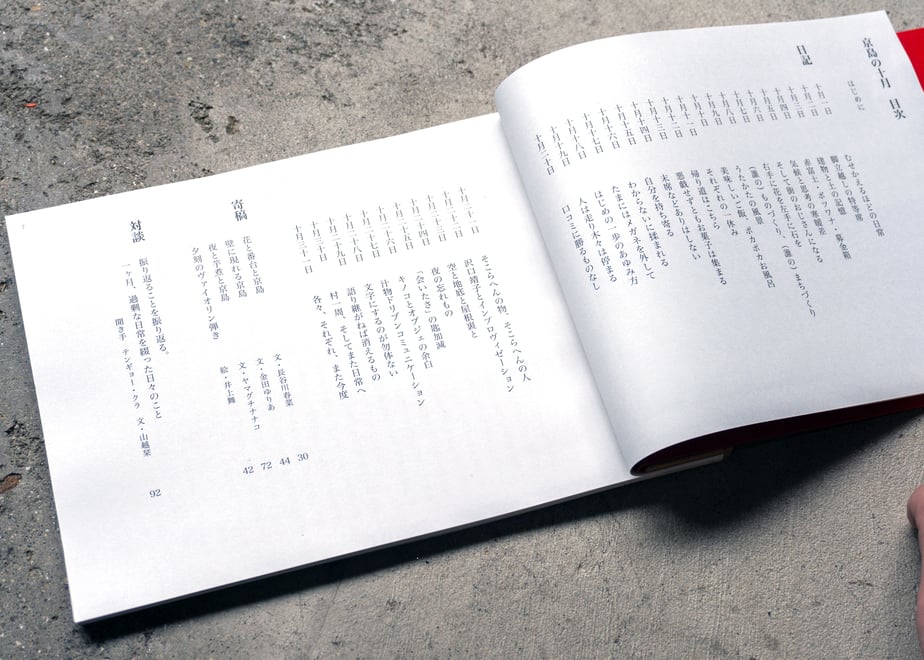 京島の十月　目次
はじめに
日記
十月一日　むせかえるほどの日常
十月二日　脚立越しの特等席
十月三日　建物と土の記憶
十月四日　赤富士・ポッワァ・募金箱
十月五日　気候と思考の寒暖差
十月六日　そして街のおじさんになる
十月七日　右手に花を左手に石を
十月八日　(誰の)ものづくり、(誰の)まちづくり
十月九日　うたかたの風景
十月十日　美味しいご飯、ポカポカお風呂
十月十一日　それぞれの一休み
十月十二日　帰り道はこちら
十月十三日　悪戯せずともお菓子は集まる
十月十四日　末席などありはしない
十月十五日　自分を持ち寄る
十月十六日　わからないに集まれる
十月十七日　たまにはメガネを外して
十月十八日　はじめの一歩のあゆみ方
十月十九日　人は走り木々は停まる
十月二十日　口コミに勝るものなし
十月二十一日　そこらへんの物、そこらへんの人
十月二十二日　沢口靖子とインプロヴィゼーション
十月二十三日　空と地底と屋根裏と
十月二十四日　夜の忘れもの
十月二十五日　「会いたさ」の匙加減
十月二十六日　キノコとオブジェの余白
十月二十七日　汁物ドリブンコミュニケーション
十月二十八日　文字にするのが勿体ない
十月二十九日　語り継がねば消えるもの
十月三十日　村一周、そしてまた日常へ
十月三十一日　各々、それぞれ、また今度
寄稿
花と番台と京島　文・長谷川春菜　30
壁に現れる京島　文・金田ゆりあ　44
夜と平煮と京島　文・ヤマグチナナコ　72
夕刻のヴァイオリン弾き　絵・井上舞　42
対談
振り返ることを振り返る。
一ヶ月、過剰な日常を綴った日々のこと
聞き手　テンギョー・クラ　文・山越栞　92